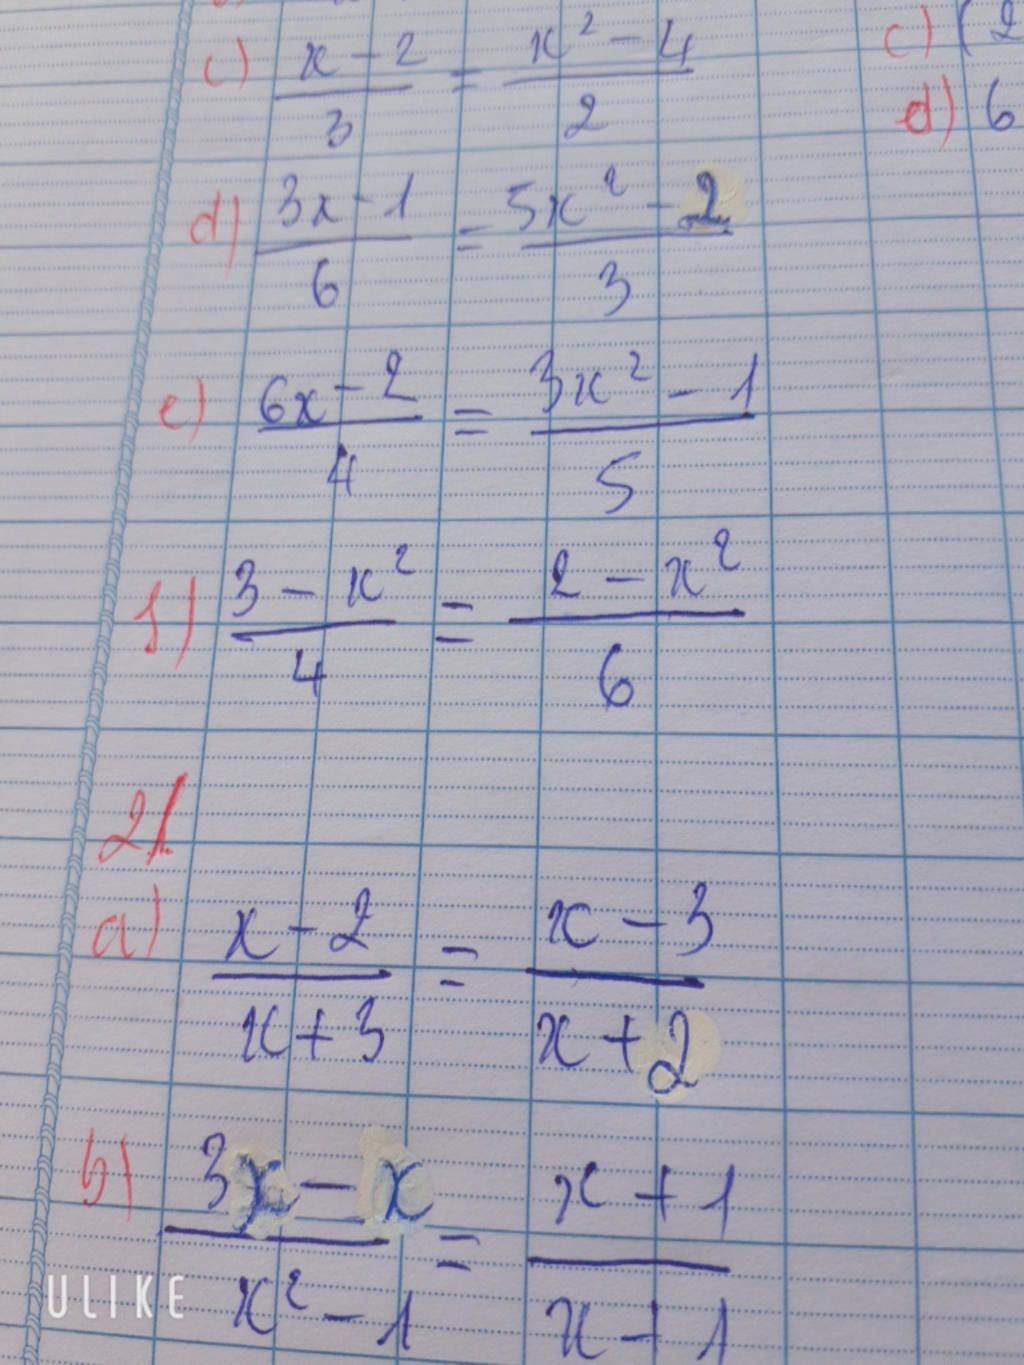 c) (x - 2)/3 = (x² - 4)/2
d) (3x - 1)/6 = (5x² - 2)/3
e) (6x - 2)/4 = (3x² - 1)/5
f) (3 - x²)/4 = (2 - x²)/6
2/
a) (x - 2)/(x + 3) = (x - 3)/(x + 2)
b) (3x - x)/(x² - 1) = (x + 1)/(x + 1)
c) (2
d) 6
ULIKE